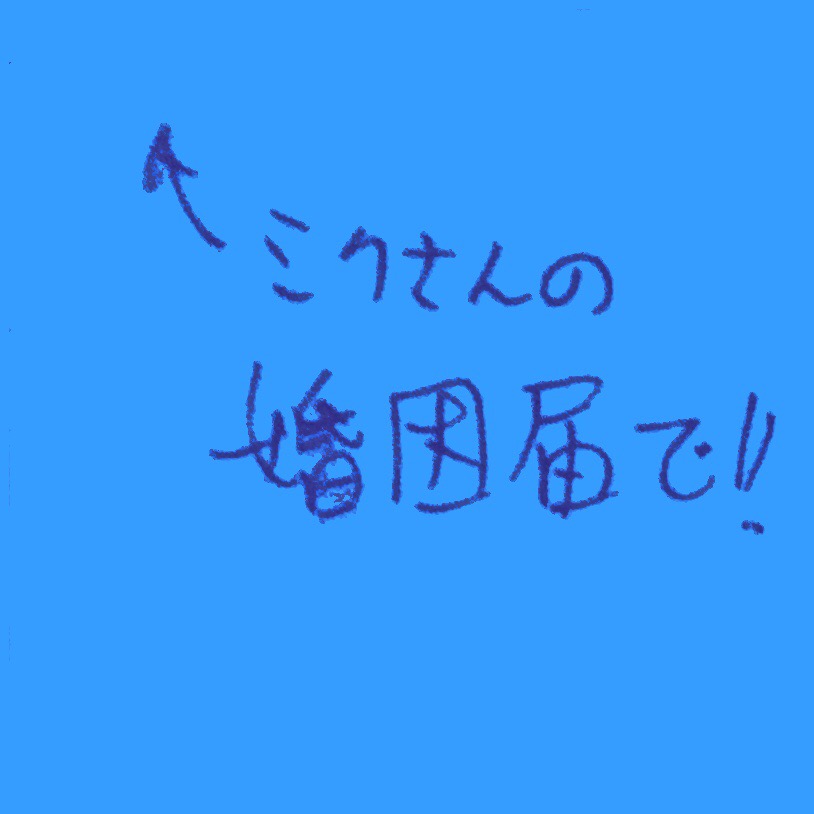 ← ミクさんの
婚因届で!!